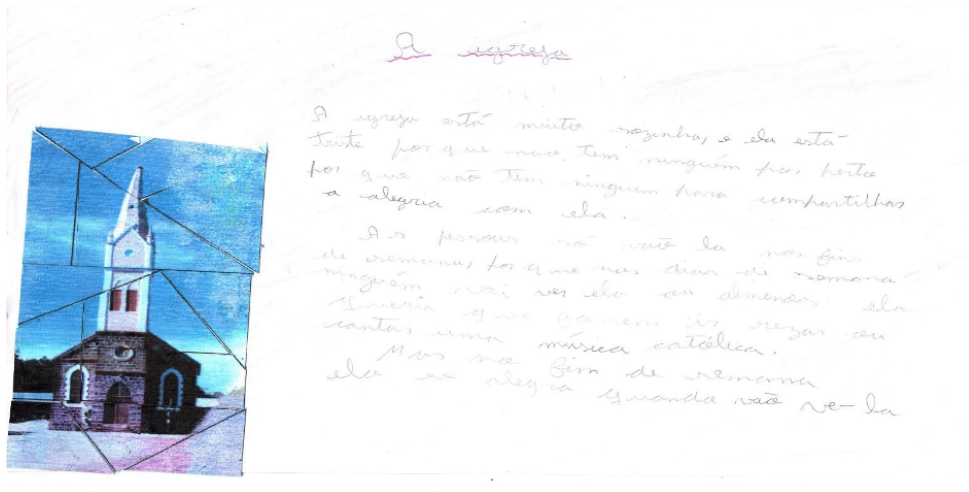 A igreja
A igreja está muito sozinha, e ela está
triste por que nuo tem ninguém por perto
por que não tem ninguem para compartilhar
a alegria com ela.
As pessoas só vaõ la nos fins
de semana, por que nas dias de semana
ninguém vai ver ela ao demenos ela
queria que fossem is rezar ou
cantar uma música católica.
Mas no fim de semana
ela se alegra quando vão ve-la